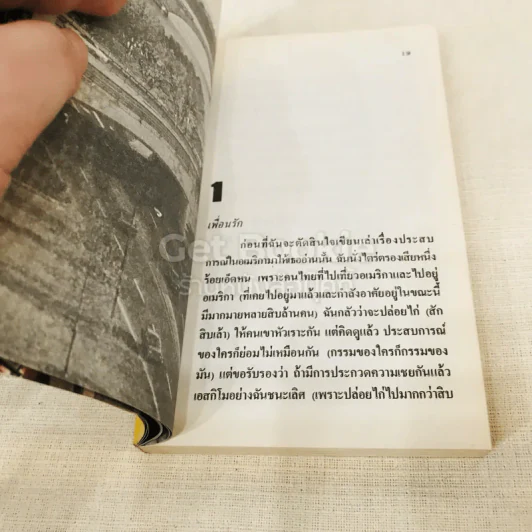 ๑๒
1
เพื่อนรัก
ก่อนที่ฉันจะตัดสินใจเขียนเล่าเรื่องประสบ
การณ์ในอเมริกามาให้เธออ่านนั้น ฉันนั่งไตร่ตรองเสียหนึ่ง
ร้อยเอ็ดหน เพราะคนไทยที่ไปเที่ยวอเมริกาและไปอยู่
อเมริกา (ที่เคยไปอยู่มาแล้วและกำลังอาศัยอยู่ในขณะนี้
มีมากมายหลายสิบล้านคน) ฉันกลัวว่าจะปล่อยไก่ (สัก
สิบเล้า) ให้คนเขาหัวเราะกัน แต่คิดดูแล้ว ประสบการณ์
ของใครก็ย่อมไม่เหมือนกัน (กรรมของใครก็กรรมของ
มัน) แต่ขอรับรองว่า ถ้ามีการประกวดความเชยกันแล้ว
เอสกิโมอย่างฉันชนะเลิศ (เพราะปล่อยไก่ไปมากกว่าสิบ